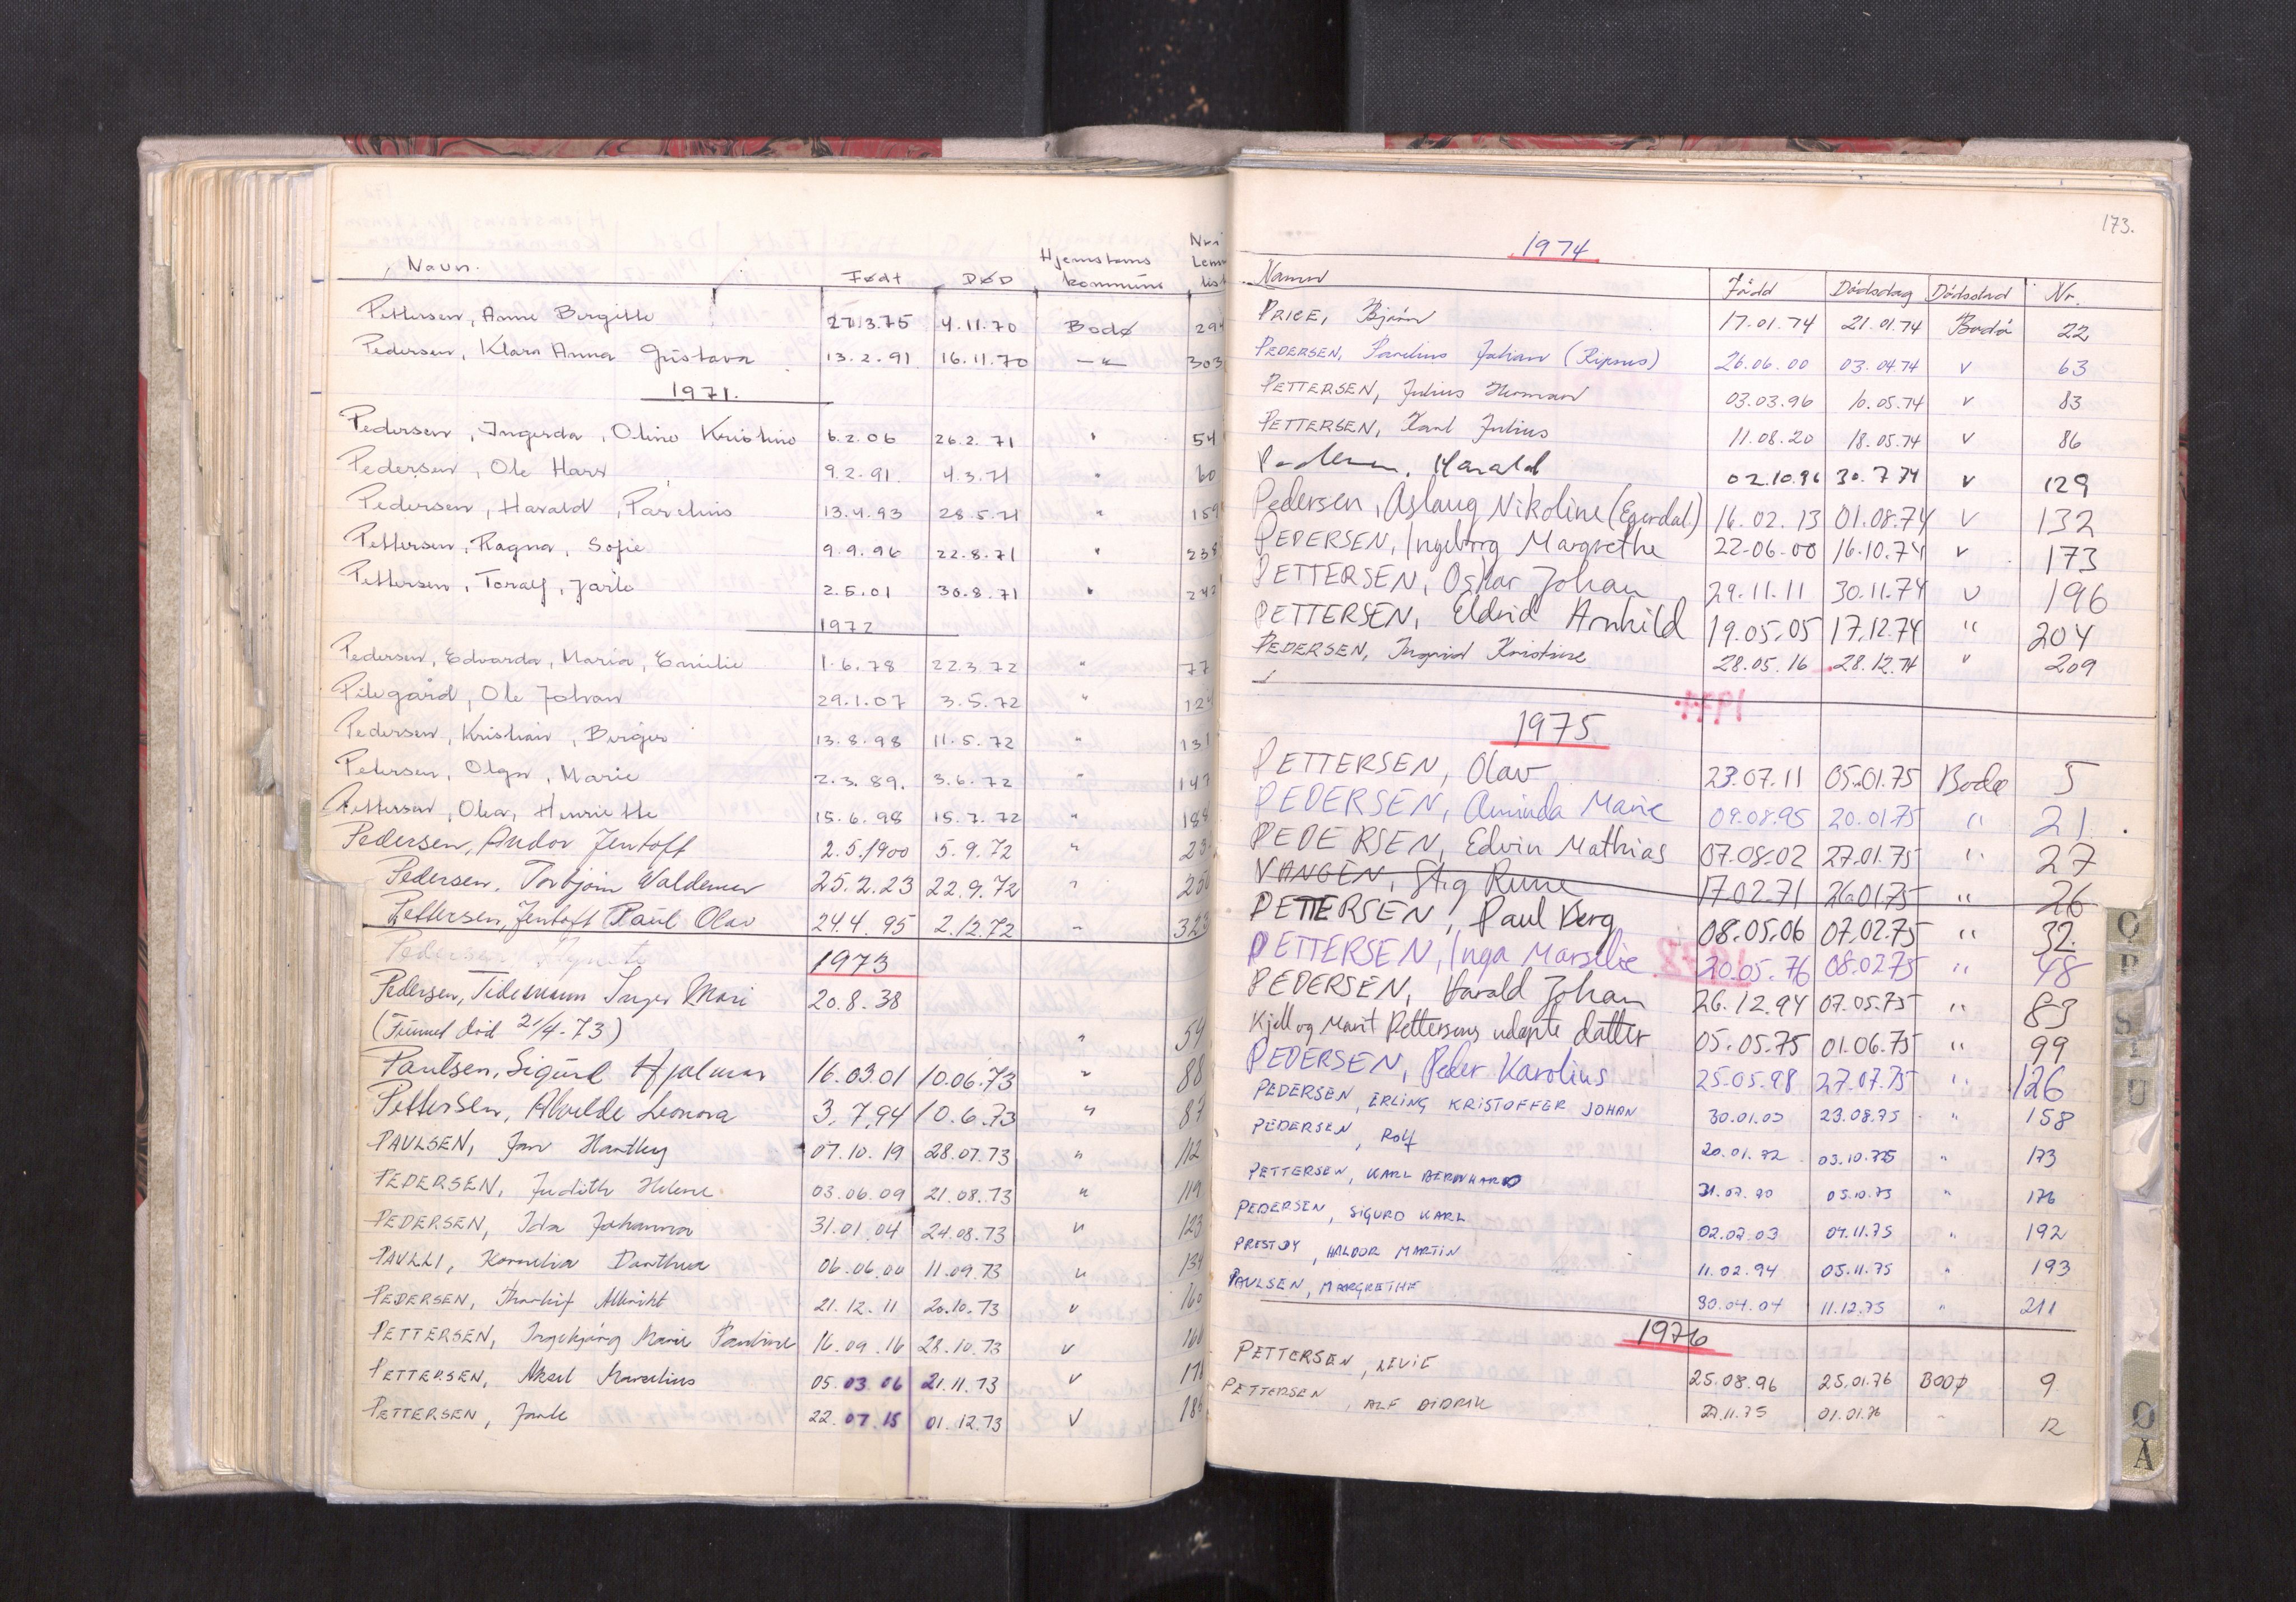 Navn. Født DØD Hjemstavns kommune Nr i Lens list
Pettersen, Anne Birgitte 27.3.75 4.11.70 Bodø 294
Pedersen, Klara Anna Gustava 13.2.91 16.11.70 —"— 303
1971.
Pedersen, Ingerda, Oline Kristine 6.2.06 26.2.71 " 54
Pedersen, Ole Hars 9.2.91. 4.3.71 " 60
Pedersen, Harald, Parelius 13.4.93 28.5.71 " 159
Pettersen, Ragna, Sofie 9.9.96 22.8.71 " 238
Pettersen, Toralf, Jarle 2.5.01 30.8.71 " 242
1972
Pedersen, Edvarda, Maria, Emilie 1.6.78 22.3.72 " 77
Pilegård, Ole Johan 29.1.07 3.5.72 " 124
Pedersen, Kristian, Birger 13.8.98 11.5.72 " 131
Pedersen, Olga, Marie 2.3.89. 3.6.72 " 147
Pettersen, Olea, Henriette 15.6.98 15.7.72 " 188
Pedersen, Andor Jentoft 2.5.1900 5.9.72 " 23
Pedersen, Torbjørn Waldemar 25.2.23 22.9.72 " 250
Pettersen, Jentoft Paul Olav 24.4.95 2.12.72 " 323
Pedersen 1973
Pedersen, Tidemann Inger Mari 20.8.38
(Funnet død 21/4-73) " 54
Paulsen, Sigurd Hjalmar 16.03.01 10.06.73 " 88
Pettersen, Alvilde Leonora 3.7.94 10.6.73 " 87
PAULSEN, Jan Hartley 07.10.19 28.07.73 " 112
PEDERSEN, Judith Helene 03.06.09 21.08.73 " 119
PEDERSEN, Ida Johanna 31.01.04 24.08.73 " 123
PAULLI, Kornelia Dorthea 06.06.00 11.09.73 " 134
PEDERSEN, Thorleif Albrikt 21.12.11 20.10.73 " 160
PETTERSEN, Ingebjørg Marie Pauline 16.09.16 28.10.73 " 160
PETTERSEN, Aksel Marelius 05.03.06 21.11.73 " 178
PETTERSEN, Jarle 22.07.15 01.12.73 " 186
173.
1974
Namn Född Dödsdag Dödsstad Nr.
PRICE, Bjørn 17.01.74 21.01.74 Bodö 22
PEDERSEN, Parelius Johan (Ripnes) 26.06.00 03.04.74 " 63
PETTERSEN, Julius Herman 03.03.96 10.05.74 " 83
PETTERSEN, Karl Julius 11.08.20 18.05.74 " 86
Pedersen, Harald 02.10.96 30.7.74 " 129
Pedersen, Aslaug Nikoline (Egerdal.) 16.02.13 01.08.74 " 132
PEDERSEN, Ingeborg Margrethe 22.06.00 16.10.74 " 173
PETTERSEN, Oskar Johan 29.11.11 30.11.74 " 196
PETTERSEN, Eldrid Arnhild 19.05.05 17.12.74 " 204
PEDERSEN, Ingrid Kristine 28.05.16 28.12.74 " 209
1975
PETTERSEN, Olav 23.07.11 05.01.75 Bodø 5
PEDERSEN, Aminda Marie 09.08.95 20.01.75 " 21
PEDERSEN, Edvin Mathias 07.08.02 27.01.75 " 27
VANGEN, Stig Rune 17.02.71 26.01.75 " 26
PETTERSEN, Paul Kerg 08.05.06 07.02.75 " 32.
PETTERSEN, Inga Marselie 20.05.76 08.02.75 " 48
PEDERSEN, Harald Johan 26.12.94 07.05.75 " 83
Kjell og Marit Pettersens udøpte datter 05.05.75 01.06.75 " 99
PEDERSEN, Peder Karolius 25.05.98 27.07.75 " 126
PEDERSEN, ERLING KRISTOFFER JOHAN 30.01.03 23.08.75 " 158
PEDERSEN, Rolf 20.01.22 03.10.75 " 173
PETTERSEN, KARL BERNHARD 31.07.90 05.10.75 " 176
PEDERSEN, SIGURD KARL 02.02.03 04.11.75 " 192
PRESTØY, HALDOR MARTIN 11.02.94 05.11.75 " 193
PAULSEN, MARGRETHE 30.04.07 11.12.75 " 211
1976
PETTERSEN, LEVIE 25.08.96 25.01.76 BODØ 9
PETTERSEN, ALF DIDRIK 27.11.75 01.01.76 " 12
O
P
S
T
U
Ø
Å